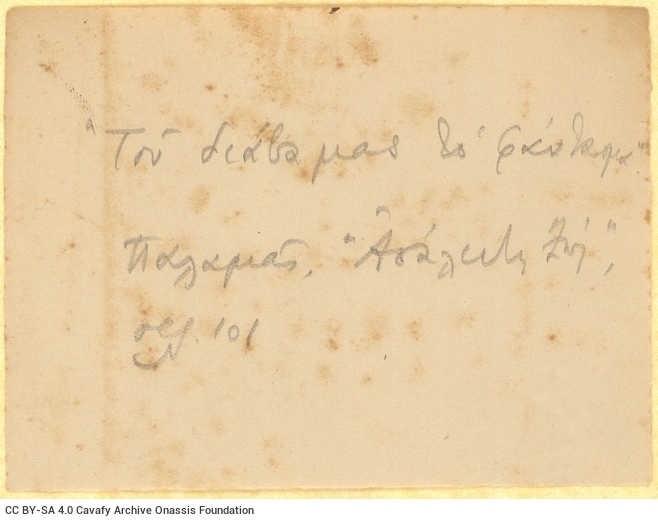 "Τοῦ διάβα μας τὸ φάντασμα".
Παλαμᾶς, "Ἀσάλευτη Ζωή",
σελ. 101
CC BY-SA 4.0 Cavafy Archive Onassis Foundation